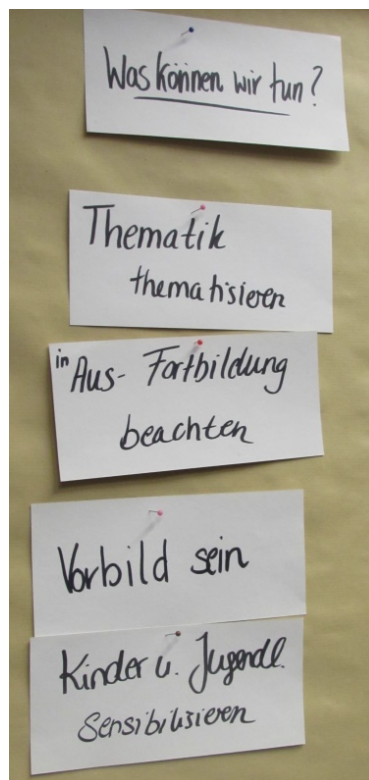 Was können wir tun?
Thematik
thematisieren
in Aus- Fortbildung
beachten
Vorbild sein
Kinder u. Jugendl.
sensibilisieren